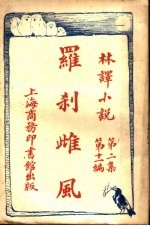 林譯小說
第二集
第十一編
羅刹雌風
上海商務印書館出版